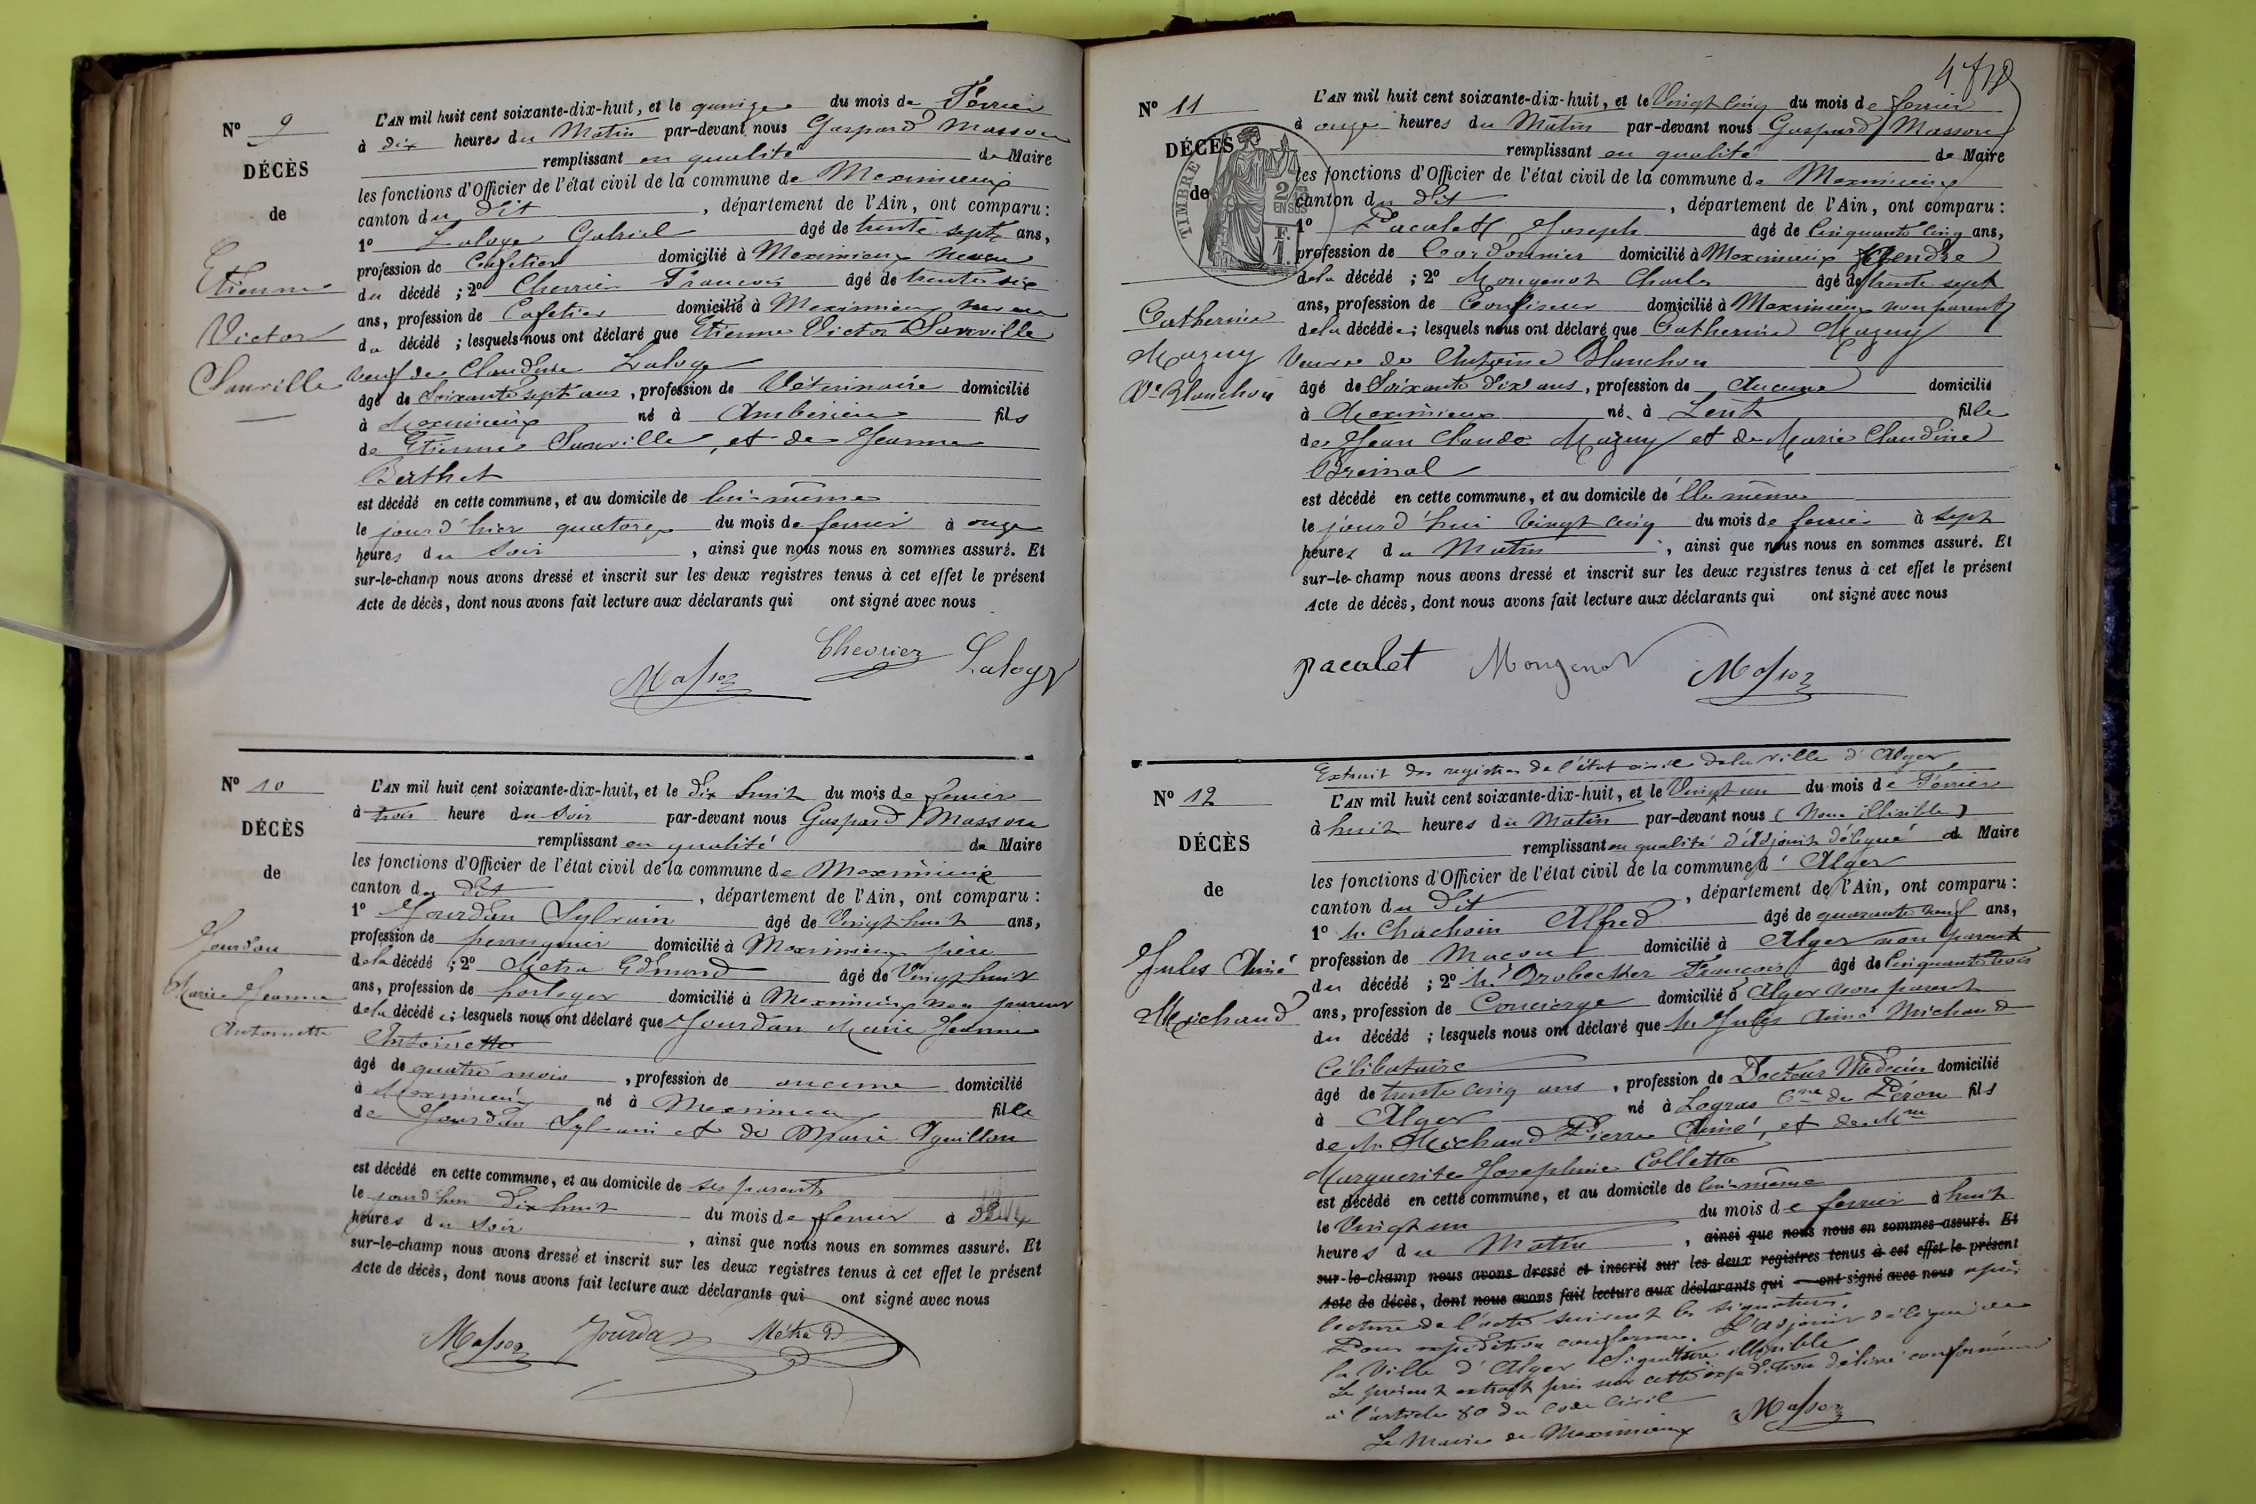 N° 9
DÉCÈS
de
Etienne
Victor
Sauville
L'AN mil huit cent soixante-dix-huit, et le quinze du mois de Février
à dix heures du Matin par-devant nous Gaspard Masson
remplissant en qualité de Maire
les fonctions d'Officier de l'état civil de la commune de Meximieux
canton du dit, département de l'Ain, ont comparu :
1° Laloge Gabriel âgé de trente sept ans,
profession de Cafetier domicilié à Meximieux neveu
du décédé ; 2° Chevrier François âgé de trente six
ans, profession de Cafetier domicilié à Meximieux neveu
du décédé ; lesquels nous ont déclaré que Etienne Victor Sauville
veuf de Claudine Laloge
âgé de Soixante sept ans, profession de Vétérinaire domicilié
à Meximieux né à Ambérieu fils
de Etienne Sauville, et de Jeanne
Berthet
est décédé en cette commune, et au domicile de lui-même
le jourd'hier quatorze du mois de février à onze
heures du Soir, ainsi que nous nous en sommes assuré. Et
sur-le-champ nous avons dressé et inscrit sur les deux registres tenus à cet effet le présent
Acte de décès, dont nous avons fait lecture aux déclarants qui ont signé avec nous
Chevrier Laloge
Masson
N° 10
DÉCÈS
de
Jourdan
Marie Jeanne
Antoinette
L'AN mil huit cent soixante-dix-huit, et le dix huit du mois de février
à trois heure du Soir par-devant nous Gaspard Masson
remplissant en qualité de Maire
les fonctions d'Officier de l'état civil de la commune de Meximieux
canton du dit, département de l'Ain, ont comparu :
1° Jourdan Sylvain âgé de Vingt huit ans,
profession de perruquier domicilié à Meximieux père
de la décédé ; 2° Métra Edmond âgé de Vingt huit
ans, profession de horloger domicilié à Meximieux non parent
de la décédée ; lesquels nous ont déclaré que Jourdan Marie Jeanne
Antoinette
âgé de quatre mois, profession de aucune domicilié
à Meximieux né à Meximieux fille
de Jourdan Sylvain et de Marie Aguillon
est décédé en cette commune, et au domicile de ses parents
le jourd'hui dix huit du mois de février à deux
heures du Soir, ainsi que nous nous en sommes assuré. Et
sur-le-champ nous avons dressé et inscrit sur les deux registres tenus à cet effet le présent
Acte de décès, dont nous avons fait lecture aux déclarants qui ont signé avec nous
Masson Jourdan Métra Ed
N° 11
DÉCÈS
de
TIMBRE
2/10
EN SUS
F. 1.
Catherine
Mazuy
Ve Blanchon
L'AN mil huit cent soixante-dix-huit, et le Vingt cinq du mois de février
à onze heures du Matin par-devant nous Gaspard Masson
remplissant en qualité de Maire
les fonctions d'Officier de l'état civil de la commune de Meximieux
canton du dit, département de l'Ain, ont comparu :
1° Pacalet Joseph âgé de Cinquante cinq ans,
profession de Cordonnier domicilié à Meximieux Gendre
de la décédé ; 2° Mougenot Charles âgé de trente sept
ans, profession de Confiseur domicilié à Meximieux non parent
de la décédée ; lesquels nous ont déclaré que Catherine Mazuy
Veuve de Antoine Blanchon
âgé de Soixante dix ans, profession de Aucune domicilié
à Meximieux né à Lent fille
de Jean Claude Mazuy et de Marie Claudine
Breinal
est décédé en cette commune, et au domicile de Elle même
le jourd'hui Vingt cinq du mois de février à sept
heures du Matin, ainsi que nous nous en sommes assuré. Et
sur-le-champ nous avons dressé et inscrit sur les deux registres tenus à cet effet le présent
Acte de décès, dont nous avons fait lecture aux déclarants qui ont signé avec nous
pacalet Mougenot Masson
Extrait des registres de l'état civil de la ville d'Alger
N° 12
DÉCÈS
de
Jules Aimé
Michaud
L'AN mil huit cent soixante-dix-huit, et le Vingt un du mois de Février
à huit heures du Matin par-devant nous (Nom illisible)
remplissant en qualité d'Adjoint délégué de Maire
les fonctions d'Officier de l'état civil de la commune d'Alger
canton du Dit, département de l'Ain, ont comparu :
1° Mr Chachoin Alfred âgé de quarante neuf ans,
profession de Maçon domicilié à Alger non parent
du décédé ; 2° Mr Drobecker François âgé de Cinquante trois
ans, profession de Concierge domicilié à Alger non parent
du décédé ; lesquels nous ont déclaré que Mr Jules Aimé Michaud
Célibataire
âgé de trente cinq ans, profession de Docteur Médecin domicilié
à Alger né à Logras Cne de Péron fils
de Mr Michaud Pierre Aimé, et de Mme
Marguerite Josephine Colletta
est décédé en cette commune, et au domicile de lui-même
le Vingt un du mois de février à huit
heures du Matin, ainsi que nous nous en sommes assuré. Et
sur-le-champ nous avons dressé et inscrit sur les deux registres tenus à cet effet le présent
Acte de décès, dont nous avons fait lecture aux déclarants qui ont signé avec nous après
lecture de l'acte suivent les signatures.
Pour expédition conforme. L'adjoint délégué de
la Ville d'Alger Signature illisible
Le présent extrait pris sur cette expédition délivré conformément
à l'article 80 du Code Civil
Le Maire de Meximieux Masson